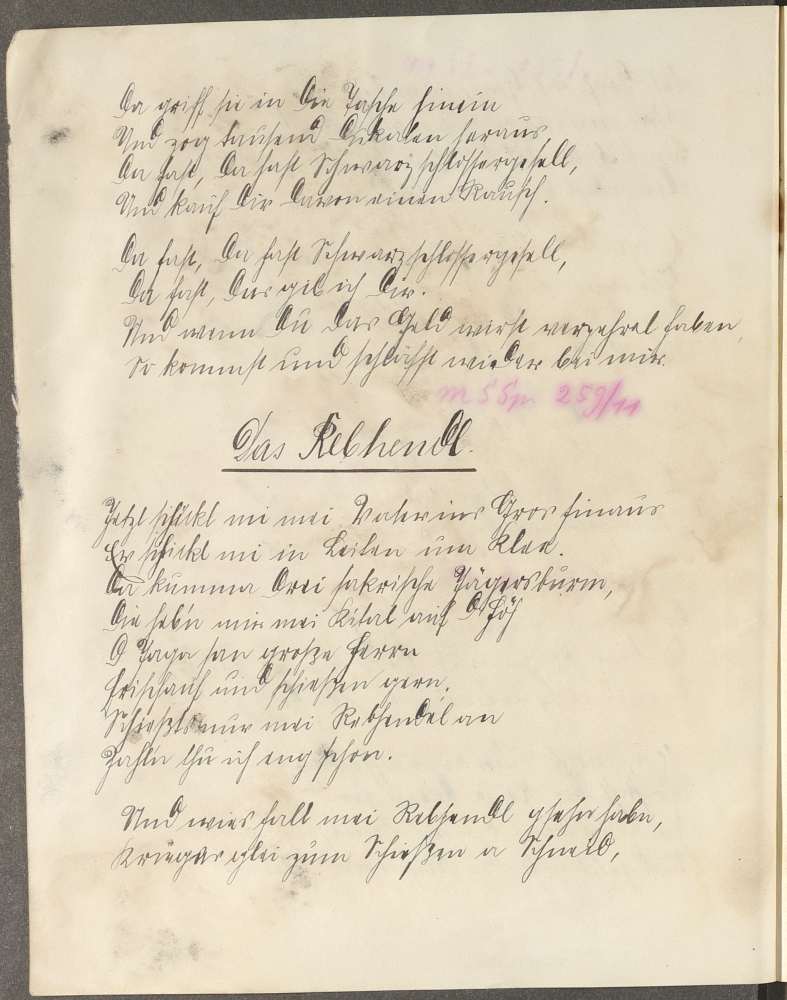 Da griff sie in die Tasche hinein
Und zog tausend Dukaten heraus,
Da hast, Da hast Schwarzschlossergesell,
Und kauf dir davon einen Rausch.
Da hast, Da hast Schwarzschlossergesell,
Da hast, Das gib ich Dir.
Und wenn Du das Geld wirst verzehrt haben,
So kommst und schläfst wieder bei mir.
259/11
Das Rebhendl.
Jetzt schickt mi mei Vater ins Gros hinaus
Er schickt mi in Leiten um Klee.
Da kumma drei sakrische Jägersburm,
Die heb'n mir mei Kital auf d' Höh
O Jaga san große Herrn
Frischauf und schießen gern.
Schießts nur mei Rebhendel an
Zahl'n thu ich eng schon.
Und wies halt mei Rebhendl gsehn habn,
Kriegns glei zum Schießen a Schneid,